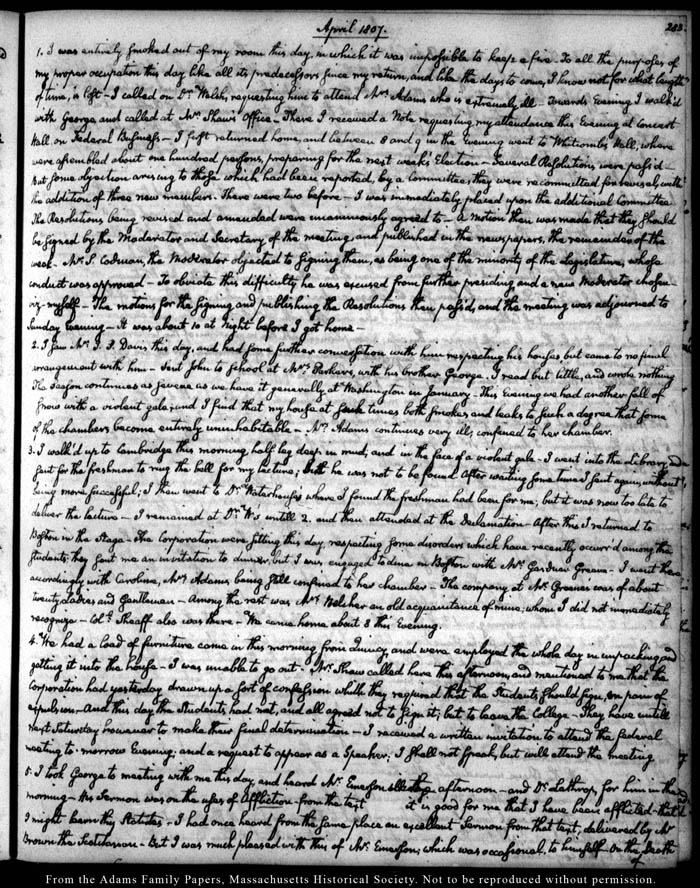 April 1807.
283.
1. I was entirely smoked out of my room this day, in which it was impossible to keep a fire. To all the purposes of
my proper occupation this day like all its predecessors since my return, and like the days to come, I know not for what length
of time, is lost - I called on Dr. Welsh, requesting him to attend Mrs. Adams who is extremely ill - Towards Evening I walk'd
with George and called at Mr. Shaw's Office - There I received a Note requesting my attendance this Evening at Concert
Hall on Federal Business - I first returned home, and between 8 and 9 in the Evening went to Whitcomb's Hall, where
were assembled about one hundred persons, preparing for the next week's Election - Several Resolutions were pass'd -
But some objection arising to those which had been reported, by a Committee, they were recommitted for revisal, with
the addition of three new members. There were two before - I was immediately placed upon the additional Committee
The Resolutions being revised and amended were unanimously agreed to - A motion then was made that they should
be signed by the Moderator and Secretary of the meeting, and published in the newspapers, the remainder of the
week - Mr. S. Codman, the Moderator objected to signing them, as being one of the minority of the Legislature, whose
conduct was approved - To obviate this difficulty he was excused from further presiding, and a new Moderator chosen
viz: myself - The motions for the signing and publishing the Resolutions then pass'd, and the meeting was adjourned to
Sunday Evening - It was about 10 at Night before I got home -
2. I saw Mr. Davis this day, and had some further conversation with him respecting his houses but came to no final
arrangement with him - Sent John to school at Mrs. Parker's, with his brother George. I read but little, and wrote nothing
The Season continues as severe as we have it generally at Washington in January - This evening we had another fall of
snow with a violent gale; and I find that my house at such times both smokes and leaks to such a degree that some
of the chambers become entirely uninhabitable - Mrs. Adams continues very ill; confined to her chamber.
3. I walk'd up to Cambridge this morning, half leg deep in mud, and in the face of a violent gale - I went into the Library and
sent for the freshman to ring the bell for my lecture; but he was not to be found. After waiting some time I sent again, without
being more successful; I then went to Dr. Waterhouse's where I found the freshman had been for me; but it was now too late to
deliver the lecture - I remained at Dr. W's untill 2. and then attended at the Declamation - After this I returned to
Boston in the Stage - The Corporation were sitting this day, respecting some disorders which have recently occurr'd among the
Students; they sent me an invitation to dinner, but I was engaged to dine in Boston with Mr. Gardner Greene - I went there
accordingly with Caroline, Mrs. Adams being still confined to her chamber - The company at Mr. Greene's was of about
twenty Ladies and Gentlemen - Among the rest was Mrs. Belcher an old acquaintance of mine; whom I did not immediately
recognize - Coll. Sheaff also was there - We came home about 8 this Evening.
4. We had a load of furniture come in this morning from Quincy, and were employed the whole day in unpacking and
getting it into the house - I was unable to go out - Mr. Shaw called here this afternoon, and mentioned to me that the
Corporation had yesterday drawn up a sort of confession which they required that the Students should sign, on pain of
expulsion - And this day the Students, had met, and all agreed not to sign it; but to leave the College - They have untill
next Saturday however to make their final determination - I received a written invitation to attend the federal
meeting to-morrow Evening; and a request to appear as a Speaker; I shall not speak, but will attend the meeting
5. I took George to meeting with me this day, and heard Mr. Emerson afternoon - and Dr. Lathrop, for him in the
morning - His Sermon was on the uses of Affliction - from the text it is good for me that I have been afflicted - that
I might learn thy Statutes - I had once heard from the same place an excellent Sermon from that text, delivered by Mr.
Brown the Scotchman - But I was much pleased with this of Mr. Emerson, which was occasional, to himself. On the Death
of
From the Adams Family Papers, Massachusetts Historical Society. Not to be reproduced without permission.